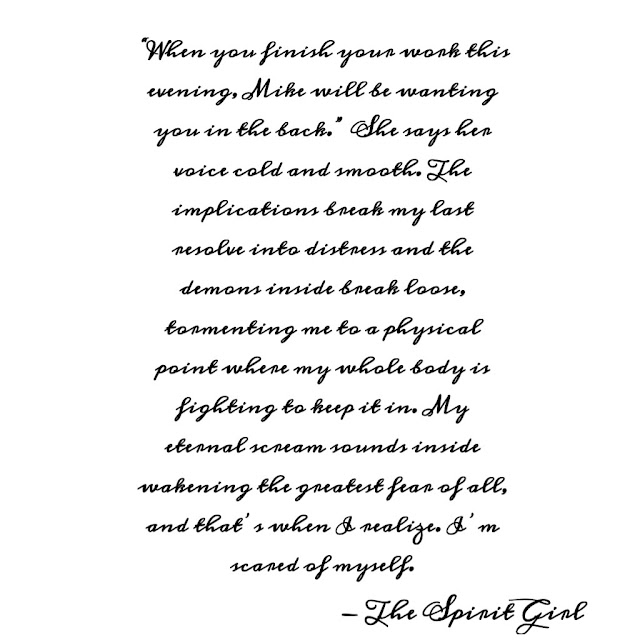 "When you finish your work this
evening, Mike will be wanting
you in the back." She says her
voice cold and smooth. The
implications break my last
resolve into distress and the
demons inside break loose,
tormenting me to a physical
point where my whole body is
fighting to keep it in. My
eternal scream sounds inside
wakening the greatest fear of all,
and that's when I realize. I'm
scared of myself.
– The Spirit Girl